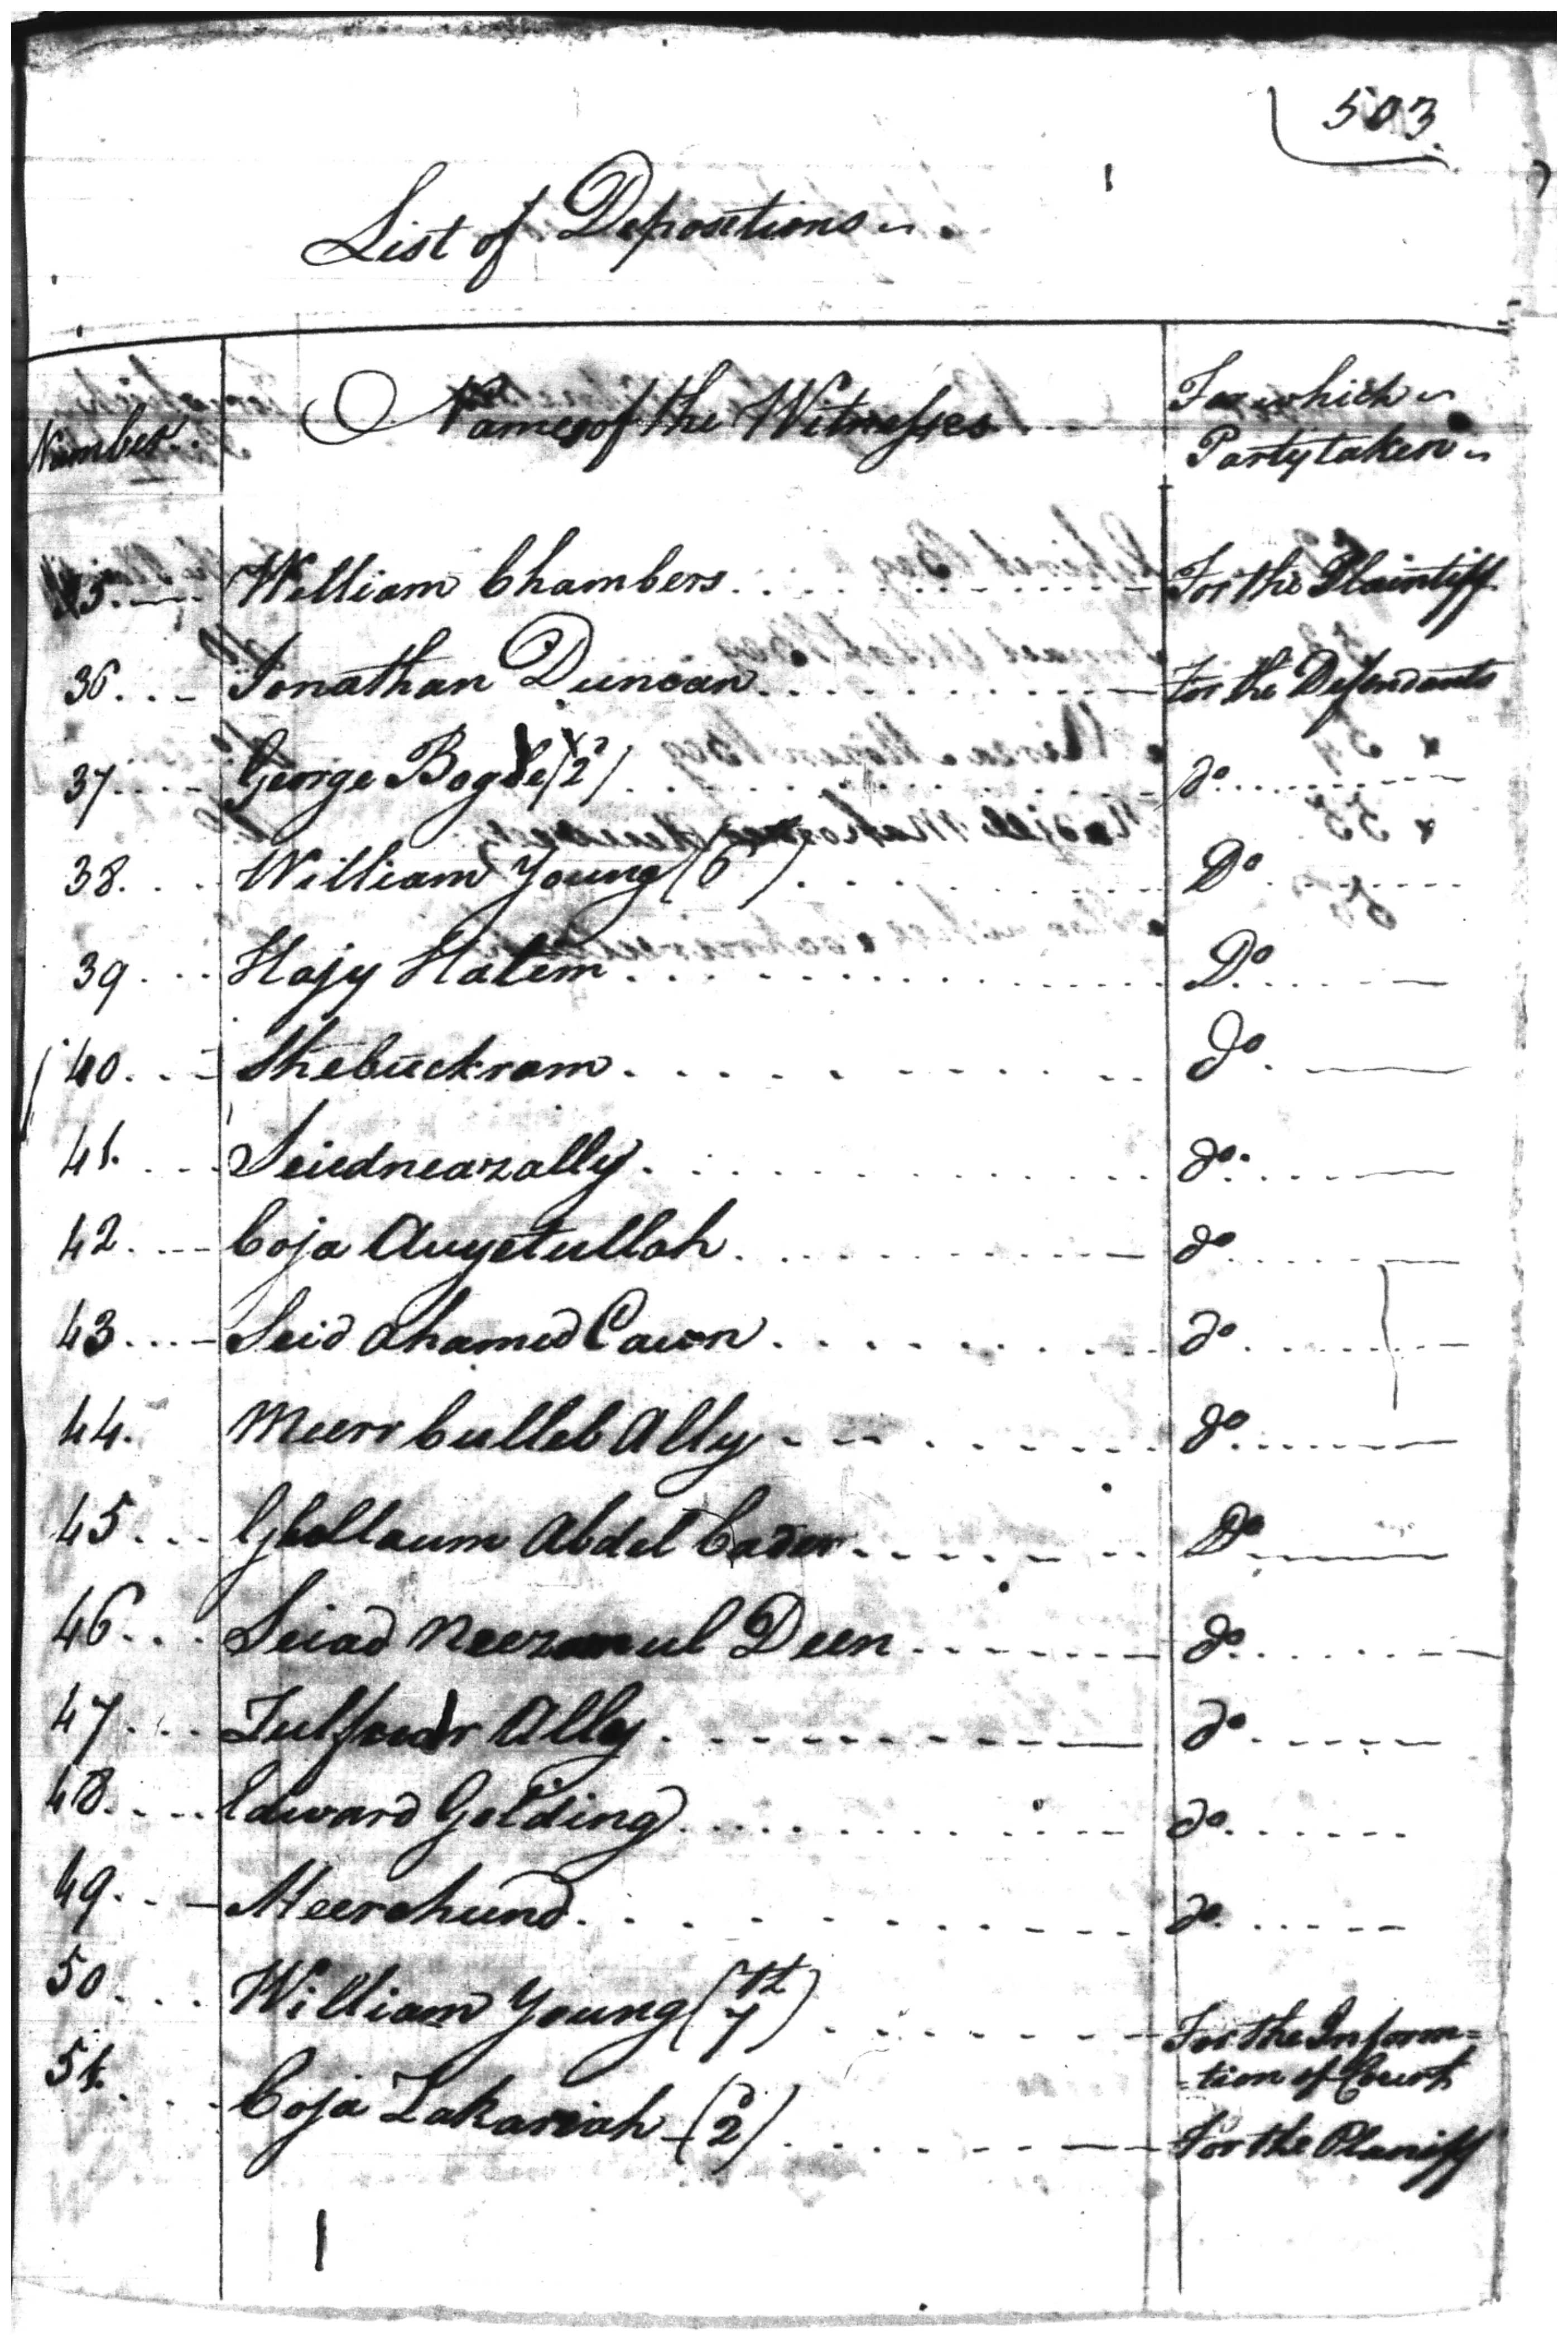 503.
List of Depositions
Number
Names of the Witnesses
For which
Party taken
35. William Chambers For the Plaintiff
36. Jonathan Duncan For the Defendants
37 George Bogle (2) do
38. William Young (6) Do
39 Hajy Hatem Do
40. Shebuckram do
41. Seiednearzally do
42 Coja Auyetullah do
43 Seid Ahamed Cawn do
44. Meer Culleb Ally do
45 Ghollaum Abdel Cader Do
46 Seiad Neezamul Deen do
47 Ally do
48. Edward Golding do
49. Heerchund do
50 William Young (7th) For the Inform=
=tion of Court
51. Coja Zakariah (2d) For the Planiff